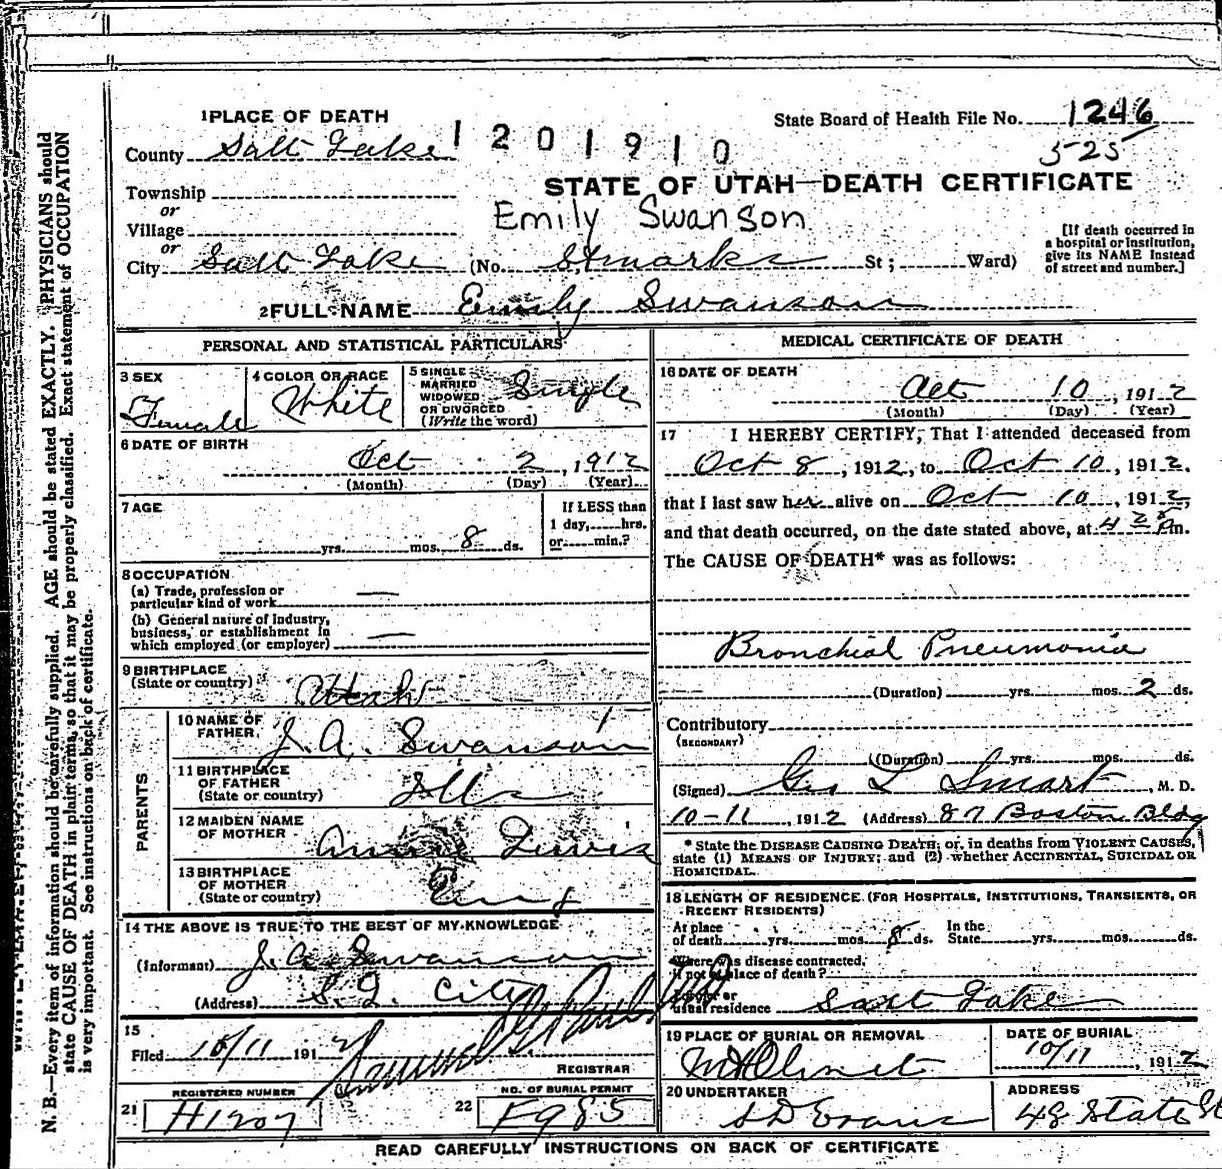 1 PLACE OF DEATH
State Board of Health File No. 1246
525
County Salt Lake
1201910
STATE OF UTAH—DEATH CERTIFICATE
Township
or
Village
or
Emily Swanson
[If death occurred in
a hospital or institution,
give its NAME instead
of street and number.]
City Salt Lake (No. St marks St; Ward)
2 FULL NAME Emily Swanson
PERSONAL AND STATISTICAL PARTICULARS
3 SEX
Female
4 COLOR OR RACE
White
5 SINGLE
MARRIED
WIDOWED
OR DIVORCED
(Write the word)
Single
6 DATE OF BIRTH
Oct 2, 1912
(Month) (Day) (Year)
7 AGE
yrs. mos. 8 ds.
If LESS than
1 day, hrs.
or min.?
8 OCCUPATION
(a) Trade, profession or
particular kind of work —
(b) General nature of industry,
business, or establishment in
which employed (or employer) —
9 BIRTHPLACE
(State or country)
Utah
PARENTS
10 NAME OF
FATHER
J. A. Swanson
11 BIRTHPLACE
OF FATHER
(State or country)
Ills
12 MAIDEN NAME
OF MOTHER
Anna Lewis
13 BIRTHPLACE
OF MOTHER
(State or country)
Eng
14 THE ABOVE IS TRUE TO THE BEST OF MY KNOWLEDGE
(Informant) J. A. Swanson
(Address) S. L. City
15
Filed 10/11 1912
REGISTRAR
REGISTERED NUMBER
21 H1207
NO. OF BURIAL PERMIT
22 F985
MEDICAL CERTIFICATE OF DEATH
16 DATE OF DEATH
Oct 10, 1912
(Month) (Day) (Year)
17 I HEREBY CERTIFY, That I attended deceased from
Oct 8, 1912, to Oct 10, 1912,
that I last saw her alive on Oct 10, 1912,
and that death occurred, on the date stated above, at 4 25 Pm.
The CAUSE OF DEATH* was as follows:
Bronchial Pneumonia
(Duration) yrs. mos. 2 ds.
Contributory
(SECONDARY)
(Duration) yrs. mos. ds.
(Signed) Geo L Smart, M. D.
10-11, 1912 (Address) 87 Boston Bldg
* State the DISEASE CAUSING DEATH; or, in deaths from VIOLENT CAUSES,
state (1) MEANS OF INJURY; and (2) whether ACCIDENTAL, SUICIDAL OR
HOMICIDAL.
18 LENGTH OF RESIDENCE (FOR HOSPITALS, INSTITUTIONS, TRANSIENTS, OR
RECENT RESIDENTS)
At place
of death yrs. mos. 8 ds.
In the
State yrs. mos. ds.
Where was disease contracted,
if not at place of death?
usual residence Salt Lake
19 PLACE OF BURIAL OR REMOVAL
Mt Olivet
DATE OF BURIAL
10/11, 1912
20 UNDERTAKER
S D Evans
ADDRESS
48 State St
READ CAREFULLY INSTRUCTIONS ON BACK OF CERTIFICATE
N. B.—Every item of information should be carefully supplied. AGE should be stated EXACTLY. PHYSICIANS should
state CAUSE OF DEATH in plain terms, so that it may be properly classified. Exact statement of OCCUPATION
is very important. See instructions on back of certificate.